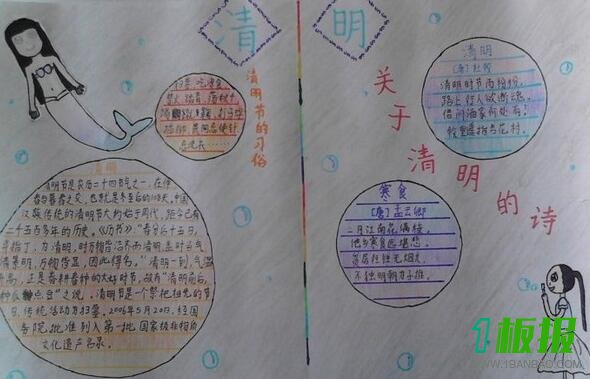 清明
清明节的习俗
扫墓、吃寒食、
禁火、踏青、荡秋千、
清明
清明节是农历二十四节气之一,在仲
春与暮春之交,也就是冬至后的108天,中国
汉族传统的清明节大约始于周代,距今已有
二千五百多年的历史。《历书》:“春分后十五日,
斗指丁,为清明,时万物皆洁齐而清明,盖时当气
清景明,万物皆显,因此得名。”清明一到,气温
升高,正是春耕春种的大好时节,故有“清明前后,
种瓜种豆”之说。清明节是一个祭祀祖先的节
日,传统活动为扫墓。2006年5月20日,经国
务院批准列入第一批国家级非物质
文化遗产名录。
关于清明的诗
清明
(唐)杜牧
清明时节雨纷纷,
路上行人欲断魂。
借问酒家何处有?
牧童遥指杏花村。
寒食
(唐)孟云卿
二月江南花满枝,
他乡寒食远堪悲。
贫居往往无烟火,
不独明朝为子推。
1板报
WWW.1BANBAO.COM